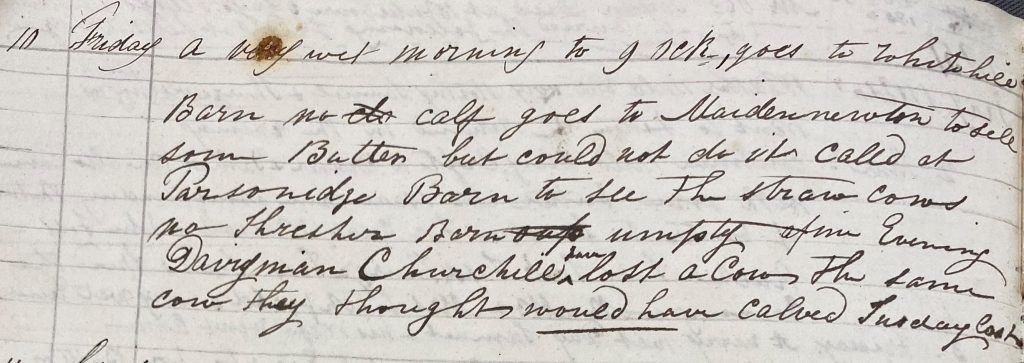 10 Friday a very wet morning to 9 ock, goes to Whitehill
Barn no calf goes to Maidennewton to sell
som Butter but could not do it called at
Parsonidge Barn to see the straw cows
no thresher Barn umpty a fine Evening
Dairyman Churchill have lost a Cow The same
cow they thought would have calved Tusday last